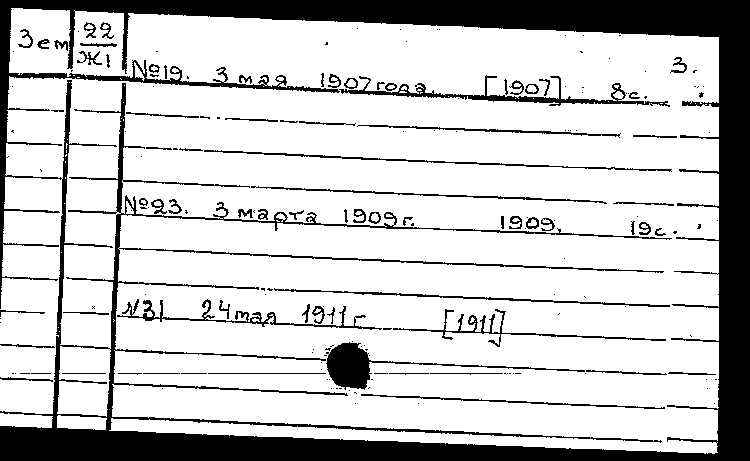 3.
Зем 22
Ж1
№19. 3 мая 1907 года [1907]. 8с.
№23. 3 марта 1909г. 1909. 19с.
№31 24 мая 1911г [1911]